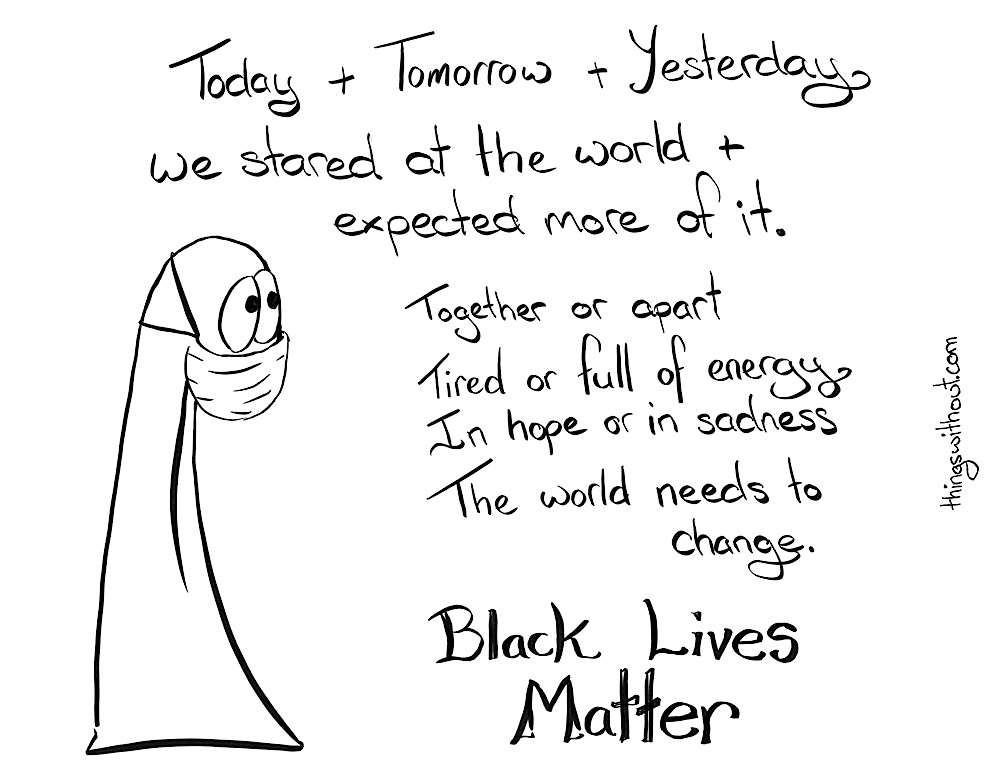 Today + Tomorrow + Yesterday
we stared at the world +
expected more of it.
Together or apart
Tired or full of energy
In hope or in sadness
The world needs to
change.
Black Lives
Matter
thingswithout.com